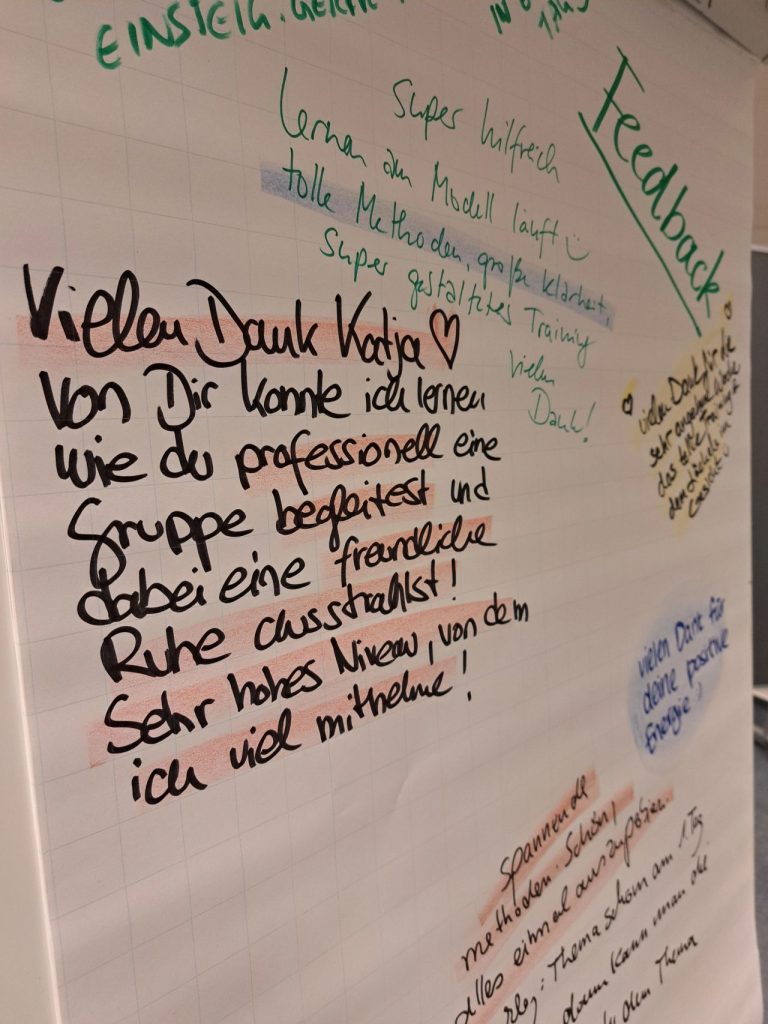 EINSTEIG.
Feedback
Super hilfreich
Lernen am Modell läuft
tolle Methoden, große Klarheit,
Super gestaltetes Training
Vielen
Dank!
Vielen Dank Katja ♡
Von Dir konnte ich lernen
wie du professionell eine
Gruppe begleitest und
dabei eine freundliche
Ruhe ausstrahlst!
Sehr hohes Niveau, von dem
ich viel mitnehme!
♡ vielen Dank für die
sehr angenehme
das tolle Training &
dem Lächeln im
Gesicht
vielen Dank für
deine positive
Energie!
Spannende
Methoden. Schön,
alles einmal auszuprobieren.
Thema schon am 1. Tag
dann kann man die
dem Thema